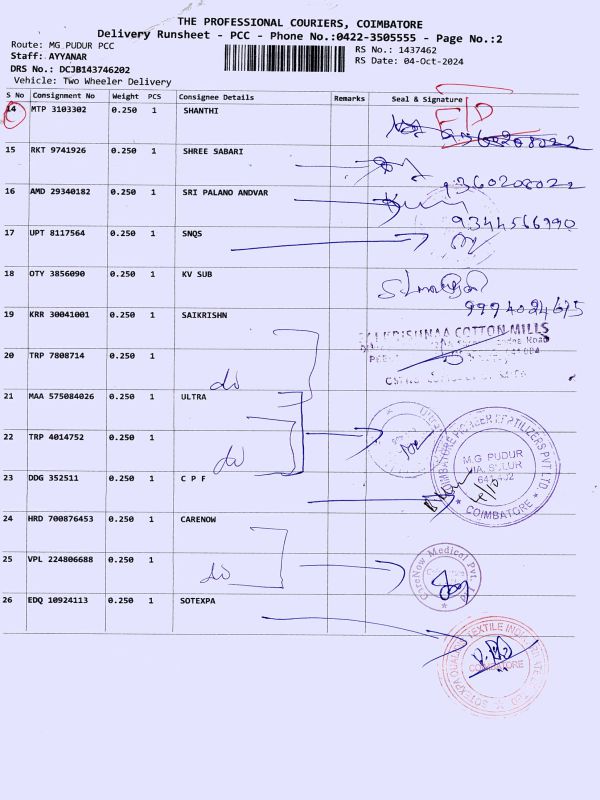 THE PROFESSIONAL COURIERS, COIMBATORE
Delivery Runsheet - PCC - Phone No.:0422-3505555 - Page No.:2
Route: MG PUDUR PCC
RS No.: 1437462
Staff: AYYANAR
RS Date: 04-Oct-2024
DRS No.: DCJB143746202
Vehicle: Two Wheeler Delivery
S No Consignment No Weight PCS Consignee Details Remarks Seal & Signature
14 MTP 3103302 0.250 1 SHANTHI
15 RKT 9741926 0.250 1 SHREE SABARI
9360208022
16 AMD 29340182 0.250 1 SRI PALANO ANDVAR
9344566990
17 UPT 8117564 0.250 1 SNQS
18 OTY 3856090 0.250 1 KV SUB
19 KRR 30041001 0.250 1 SAIKRISHN
KRISHNAA COTTON MILLS
20 TRP 7808714 0.250 1
do
21 MAA 575084026 0.250 1 ULTRA
22 TRP 4014752 0.250 1
do
COIMBATORE PIONEER FERTILIZERS PVT LTD.
M.G. PUDUR
VIA. SULUR
COIMBATORE
4/10
23 DDG 352511 0.250 1 C P F
24 HRD 700876453 0.250 1 CARENOW
25 VPL 224806688 0.250 1
do
CareNow Medical Pvt. Ltd
26 EDQ 10924113 0.250 1 SOTEXPA
SOTEXPA QUALIDIS TEXTILE INDIA PRIVATE LIMITED
COIMBATORE